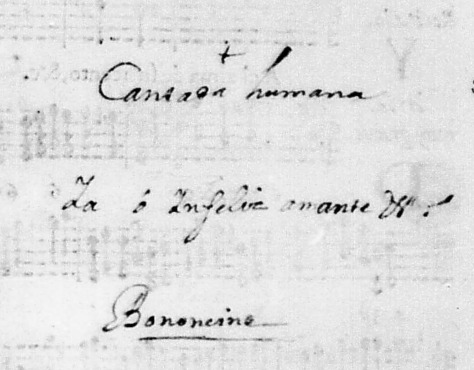 Cantada humana
Ya ó Infeliz amante &ª
Bononcino